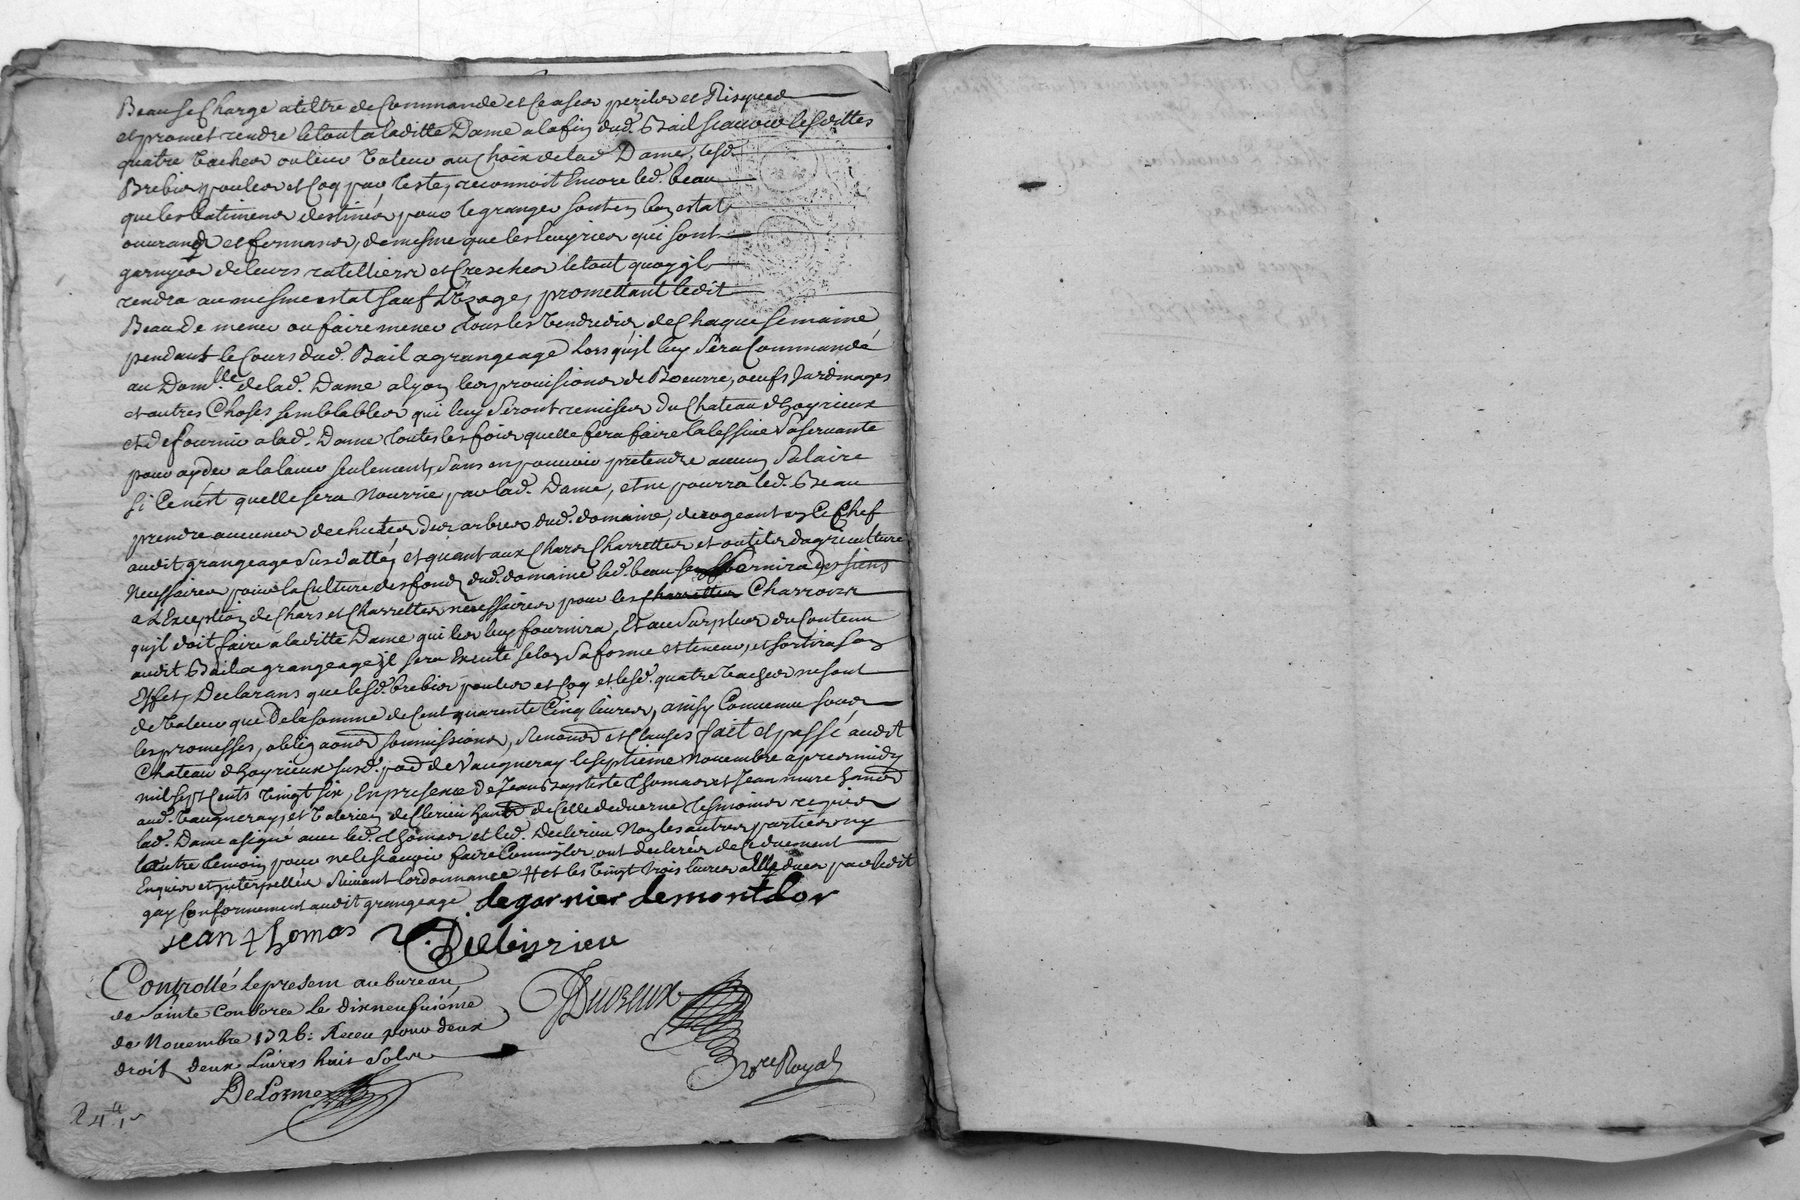 Beau se Charge a tiltre de Commande et Ce a ses perils et Risques
et promet rendre le tout a laditte Dame a la fin dud. Bail scauoir lesdittes
quatre Vaches ou leur Valeur au Choix de lad. Dame, lesd.
Brebis, poules et Coq par teste, reconnoit Encore led. beau
que les batimens destinés pour le granger sont en bon estat
ouurans et fermans, de mesme que les Escuyries qui sont
garnyes de leurs ratelliers et Cresches le tout quoy jl
rendra au mesme estat sauf L'Vzage, promettant ledit
Beau de mener ou faire mener tous les Vendredis de Chaque semaine
pendant le Cours dud. Bail a grangeage Lors qu'jl luy sera Commandé
au Domlle. de lad. Dame a lyon les prouisions de Boeurre, oeufs Jardinages
et autres Choses semblables qui luy seront remises du Chateau d'hoyrieux
et de fournir a lad. Dame toutes les fois quelle fera faire la lessiue sa seruante
pour ayder a la lauer seulement, sans en pouuoir pretendre aucun salaire
si Ce n'est quelle sera nourrie par lad. Dame, et ne pourra led. Beau
prendre aucunes dechutes des arbres dud. domaine, derogeant en Ce Chef
audit grangeage susdatté, et quant aux Chars Charrettes et outils dagriculture
Necessaires pour la Culture des fonds dud. domaine led. beau se fornira des siens
a L'Exception de Chars et Charrettes necessaires pour les Charrettes Charrois
qu'jl doit faire a laditte Dame qui les luy fournira, Et au surplus du Contenu
audit Bail a grangeage jl sera Executé selon sa forme et teneur, et sortira son
Effet, Declarans que lesd. brebis poules et Coq et lesd. quatre Vaches ne sont
de Valeur que De la somme de Cent quarente Cinq liures, ainsy Conuenu sous
les promesses, obligaons soumissions, Renons et Clauses fait et passé audit
Chateau d'hoyrieux susd. pnd de Vaugneray le septieme Nouembre apres midy
mil sept Cents Vingt six, En presence de Jean Baptiste Thomas et Jean mure
aud. Vaugneray, et Valerien de Clerieu de Celle
lad. Dame a signé auec led. Thomas et led. Declerieu Non les autres parties ny
l'autre temoin pour ne le scauoir faire Comm'jls ont declarés de Ce duement
Enquis et jnterpellés suiuant lordonnance # et les Vingt trois liures a Elle dues par ledit
gay Conformement audit grangeage degarnier demontdor
jean thomas Declerieu
Controllés le present au bureau
de Sainte Consorce le dix neufuiéme
de Nouembre 1726: Receu pour deux
droit deux Liures huit sols
Delorme
Duureux
Nre Royal